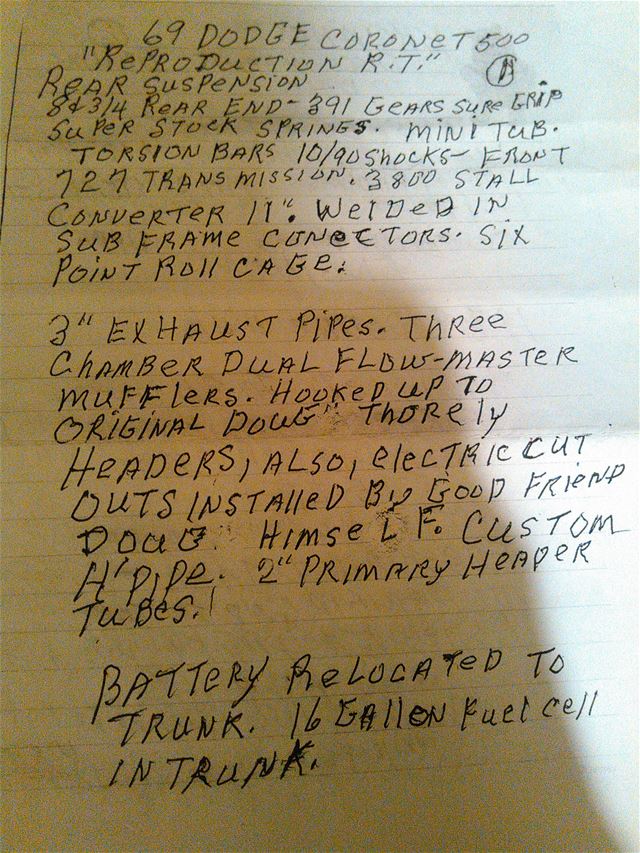 69 DODGE CORONET 500
"REPRODUCTION R.T."
A
REAR SUSPENSION
8 & 3/4 REAR END - 391 GEARS SURE GRIP
SUPER STOCK SPRINGS. MINI TUB.
TORSION BARS 10/90 SHOCKS - FRONT
727 TRANSMISSION. 3800 STALL
CONVERTER 11". WELDED IN
SUB FRAME CONECTORS. SIX
POINT ROLL CAGE.
3" EXHAUST PIPES. THREE
CHAMBER DUAL FLOW-MASTER
MUFFLERS. HOOKED UP TO
ORIGINAL DOUG" THORELY
HEADERS, ALSO, ELECTRIC CUT
OUTS INSTALLED By GOOD FRIEND
DOUG. HIMSELF. CUSTOM
H'PIPE. 2" PRIMARY HEADER
TUBES.
BATTERY RELOCATED TO
TRUNK. 16 GALLON FUEL CELL
IN TRUNK.